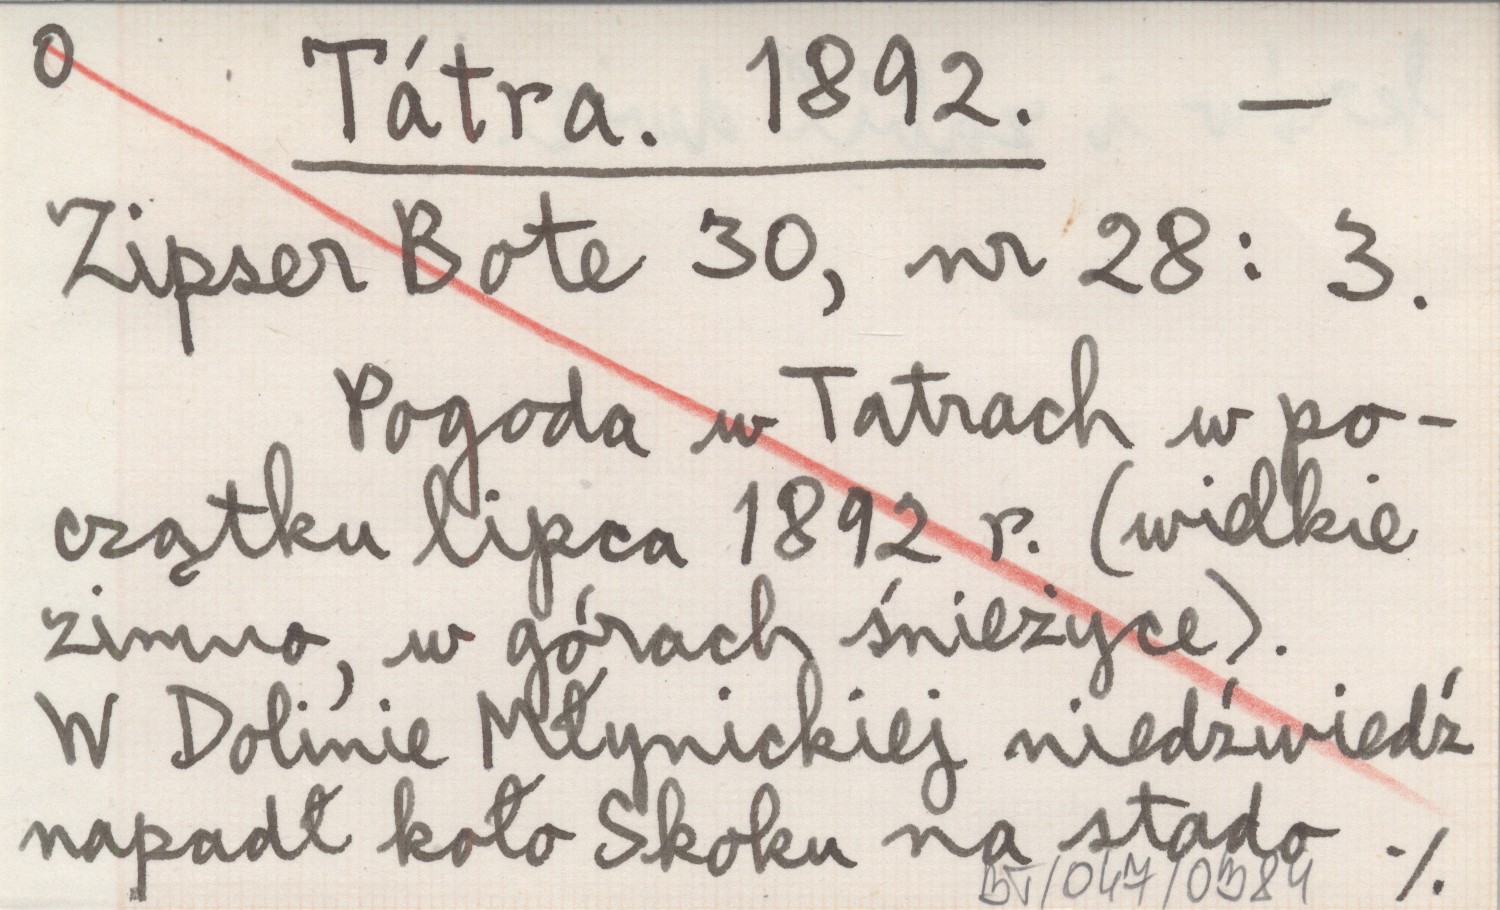 0 Tátra. 1892. —
Zipser Bote 30, nr 28: 3.
Pogoda w Tatrach w po-
czątku lipca 1892 r. (wielkie
zimno, w górach śnieżyce).
W Dolinie Młynickiej niedźwiedź
napadł koło Skoku na stado ./.
BT/047/0384